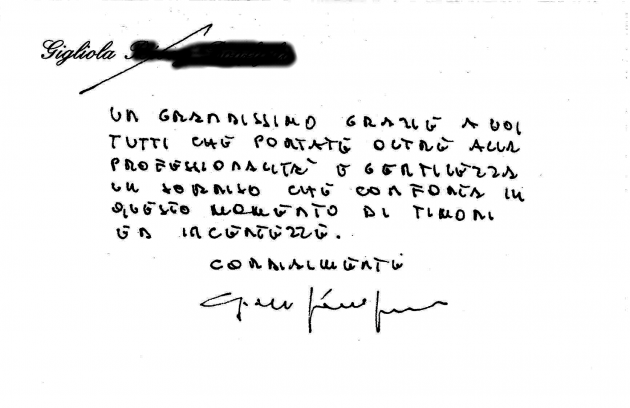 Gigliola
UN GRANDISSIMO GRAZIE A VOI
TUTTI CHE PORTATE OLTRE ALLA
PROFESSIONALITA' E GENTILEZZA
UN SORRISO CHE CONFORTA IN
QUESTO MOMENTO DI TIMORI
ED INCERTEZZE.
CORDIALMENTE